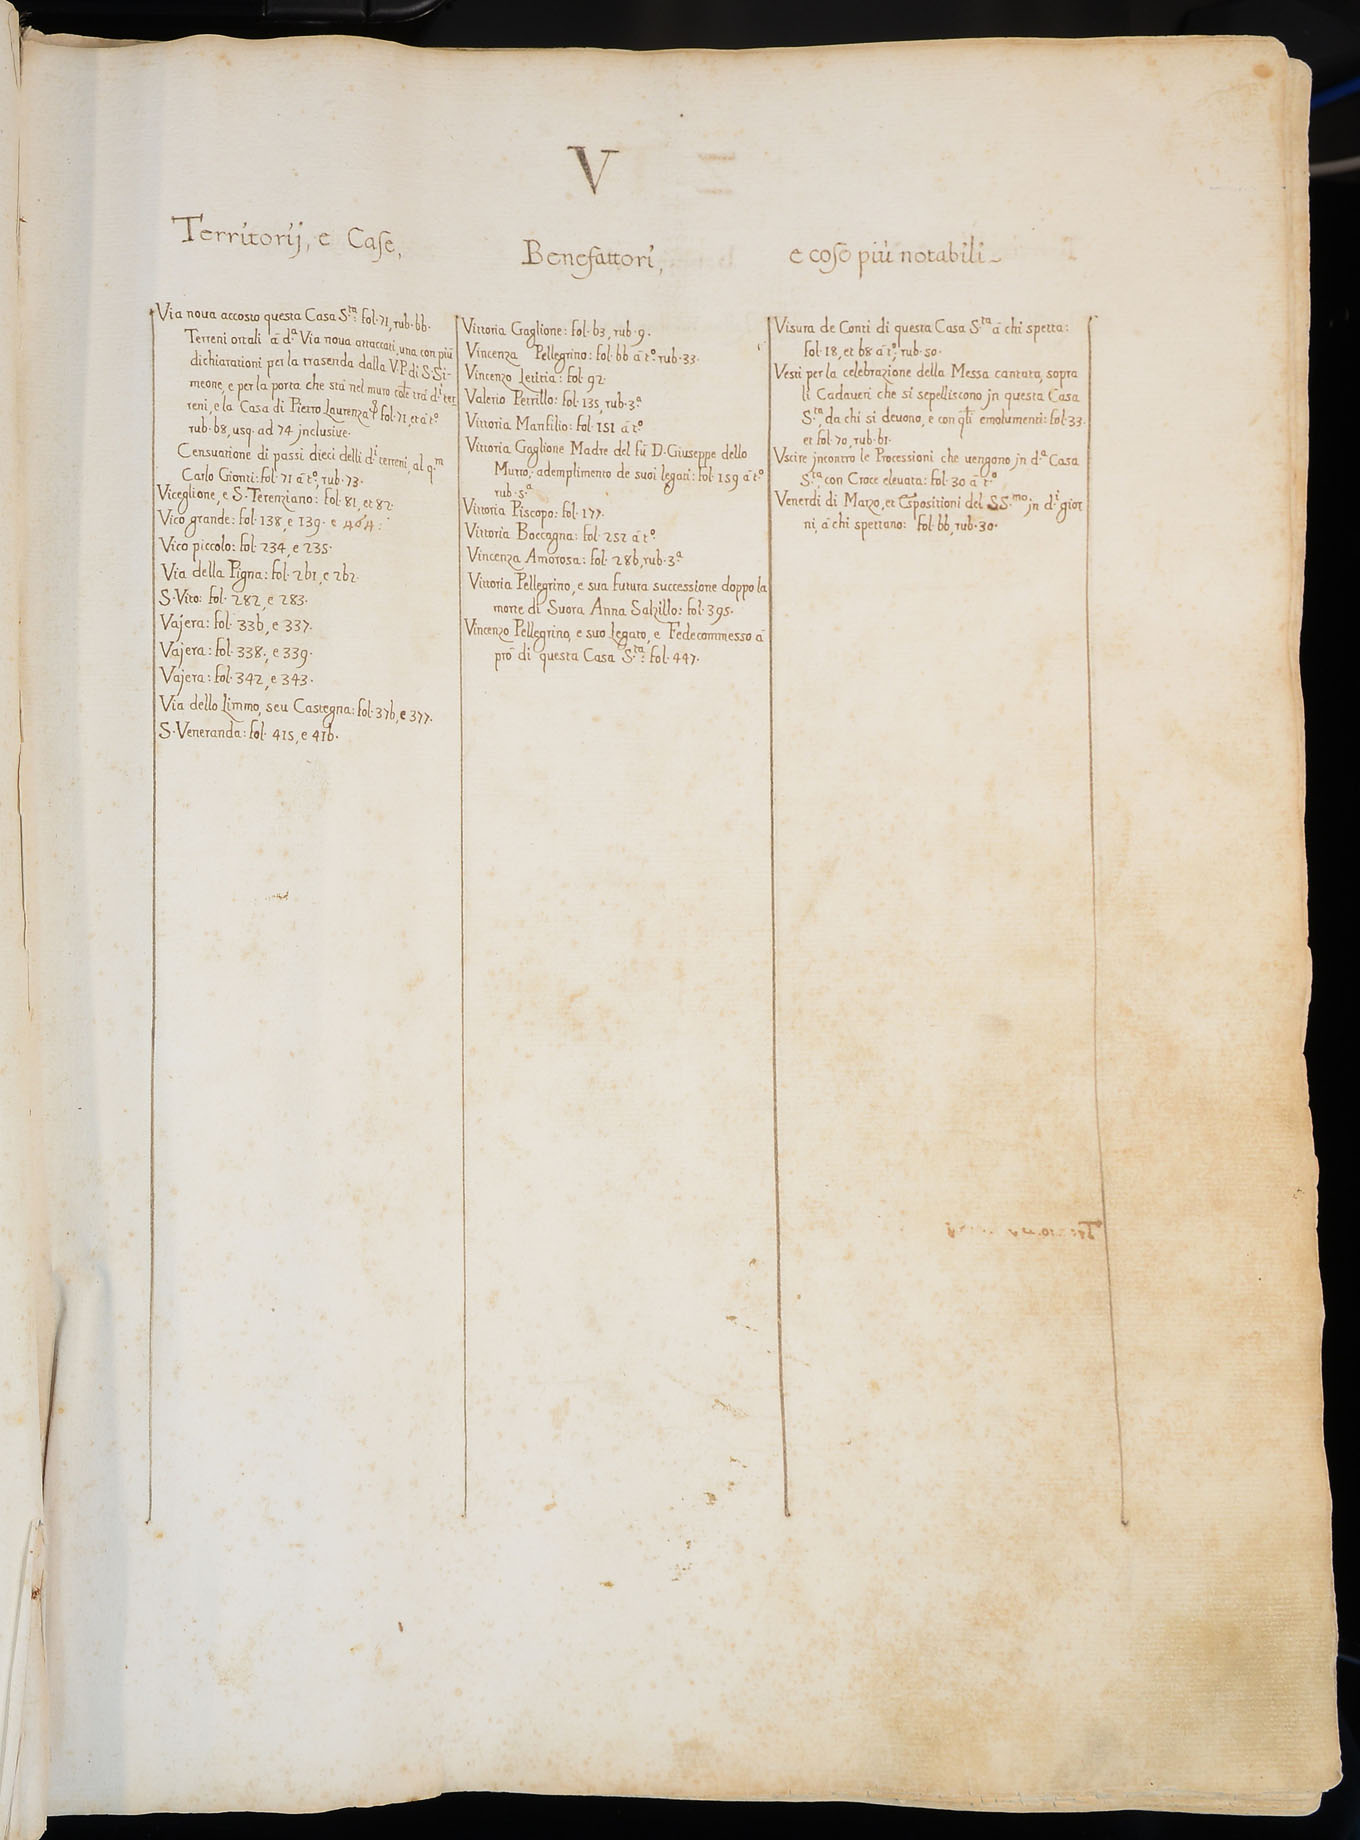 V
Territorij, e Case,
Via noua accosto questa Casa S.ta: fol. 71, rub. 66.
Terreni ortali à d.a Via noua attaccati, una con più
dichiarationi per la trasenda dalla V.P. di S. Si-
meone, e per la porta che stà nel muro trà d.i ter
reni, e la Casa di Pietro Laurenza fol. 71, et à t.o
rub. 68, usq. ad 74 jnclusiue.
Censuatione di passi dieci delli d.i terreni, al q.m
Carlo Gionti: fol. 71 à t.o, rub. 73.
Viceglione, e S. Terenziano: fol. 81, et 82.
Vico grande: fol. 138, e 139. e 464:
Vico piccolo: fol. 234, e 235.
Via della Pigna: fol. 261, e 262.
S. Vito: fol. 282, e 283.
Vajera: fol. 336, e 337.
Vajera: fol. 338, e 339.
Vajera: fol. 342, e 343.
Via dello Limmo, seu Castegna: fol. 376, e 377.
S. Veneranda: fol. 415, e 416.
Benefattori,
Vittoria Gaglione: fol. 63, rub. 9.
Vincenza Pellegrino: fol. 66 à t.o rub. 33.
Vincenzo Letitia: fol. 92.
Valerio Petrillo: fol. 135, rub. 3.a
Vittoria Manfilio: fol. 151 à t.o
Vittoria Gaglione Madre del fù D. Giuseppe dello
Mutto, adempimento de suoi legati: fol. 159 à t.o
rub. 5.a
Vittoria Piscopo: fol. 177.
Vittoria Boccagna: fol. 252 à t.o
Vincenza Amorosa: fol. 286, rub. 3.a
Vittoria Pellegrino, e sua futura successione doppo la
morte di Suora Anna Salzillo: fol. 395.
Vincenzo Pellegrino, e suo Legato, e Fedecommesso à
prò di questa Casa S.ta: fol. 447.
e cose più notabili
Visura de Conti di questa Casa S.ta à chi spetta:
fol. 18, et 68 à t.o, rub. 50.
Vesti per la celebrazione della Messa cantata, sopra
li Cadaueri che si sepelliscono jn questa Casa
S.ta, da chi si deuono, e con q̄li emolumenti: fol. 33.
et fol. 70, rub. 61.
Vscire jncontro le Processioni che uengono jn d.a Casa
S.ta, con Croce eleuata: fol. 30 à t.o
Venerdi di Marzo, et Espositioni del SS.mo jn d.i gior
ni, à chi spettano: fol. 66, rub. 30.